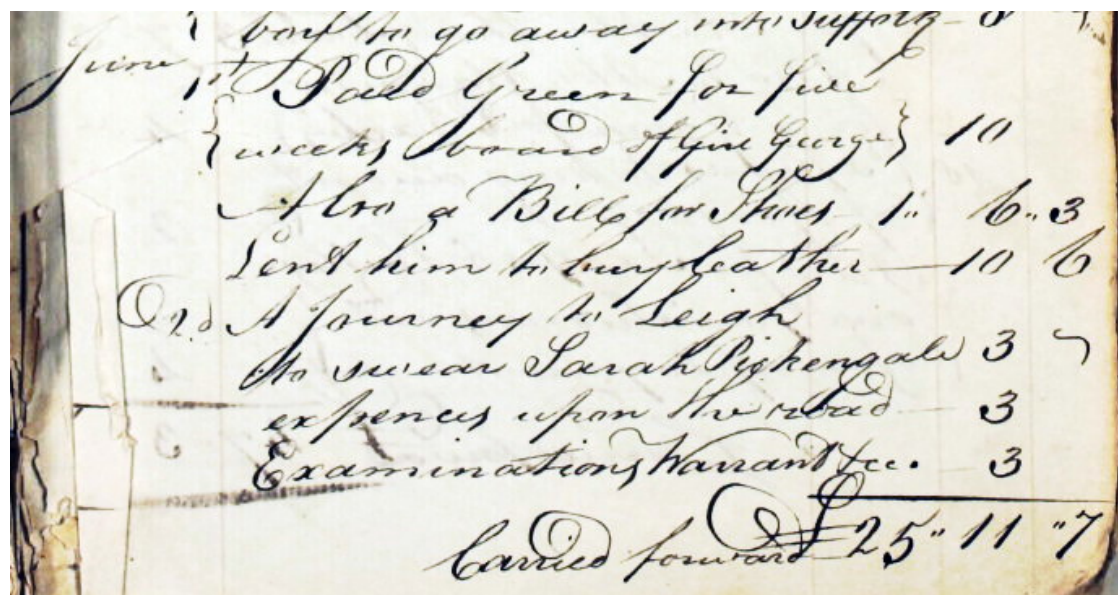 boy to go away into Suffolk - 8
June 1st Paid Green for five
weeks board of Girl George 10
Also a Bill for Shoes 1" 6" 3
Lent him to buy leather — 10 6
2d A Journey to Leigh
to swear Sarah Pickengale 3
expences upon the road — 3
Examinations, Warrant &c. 3
Carried forward £25" 11" 7